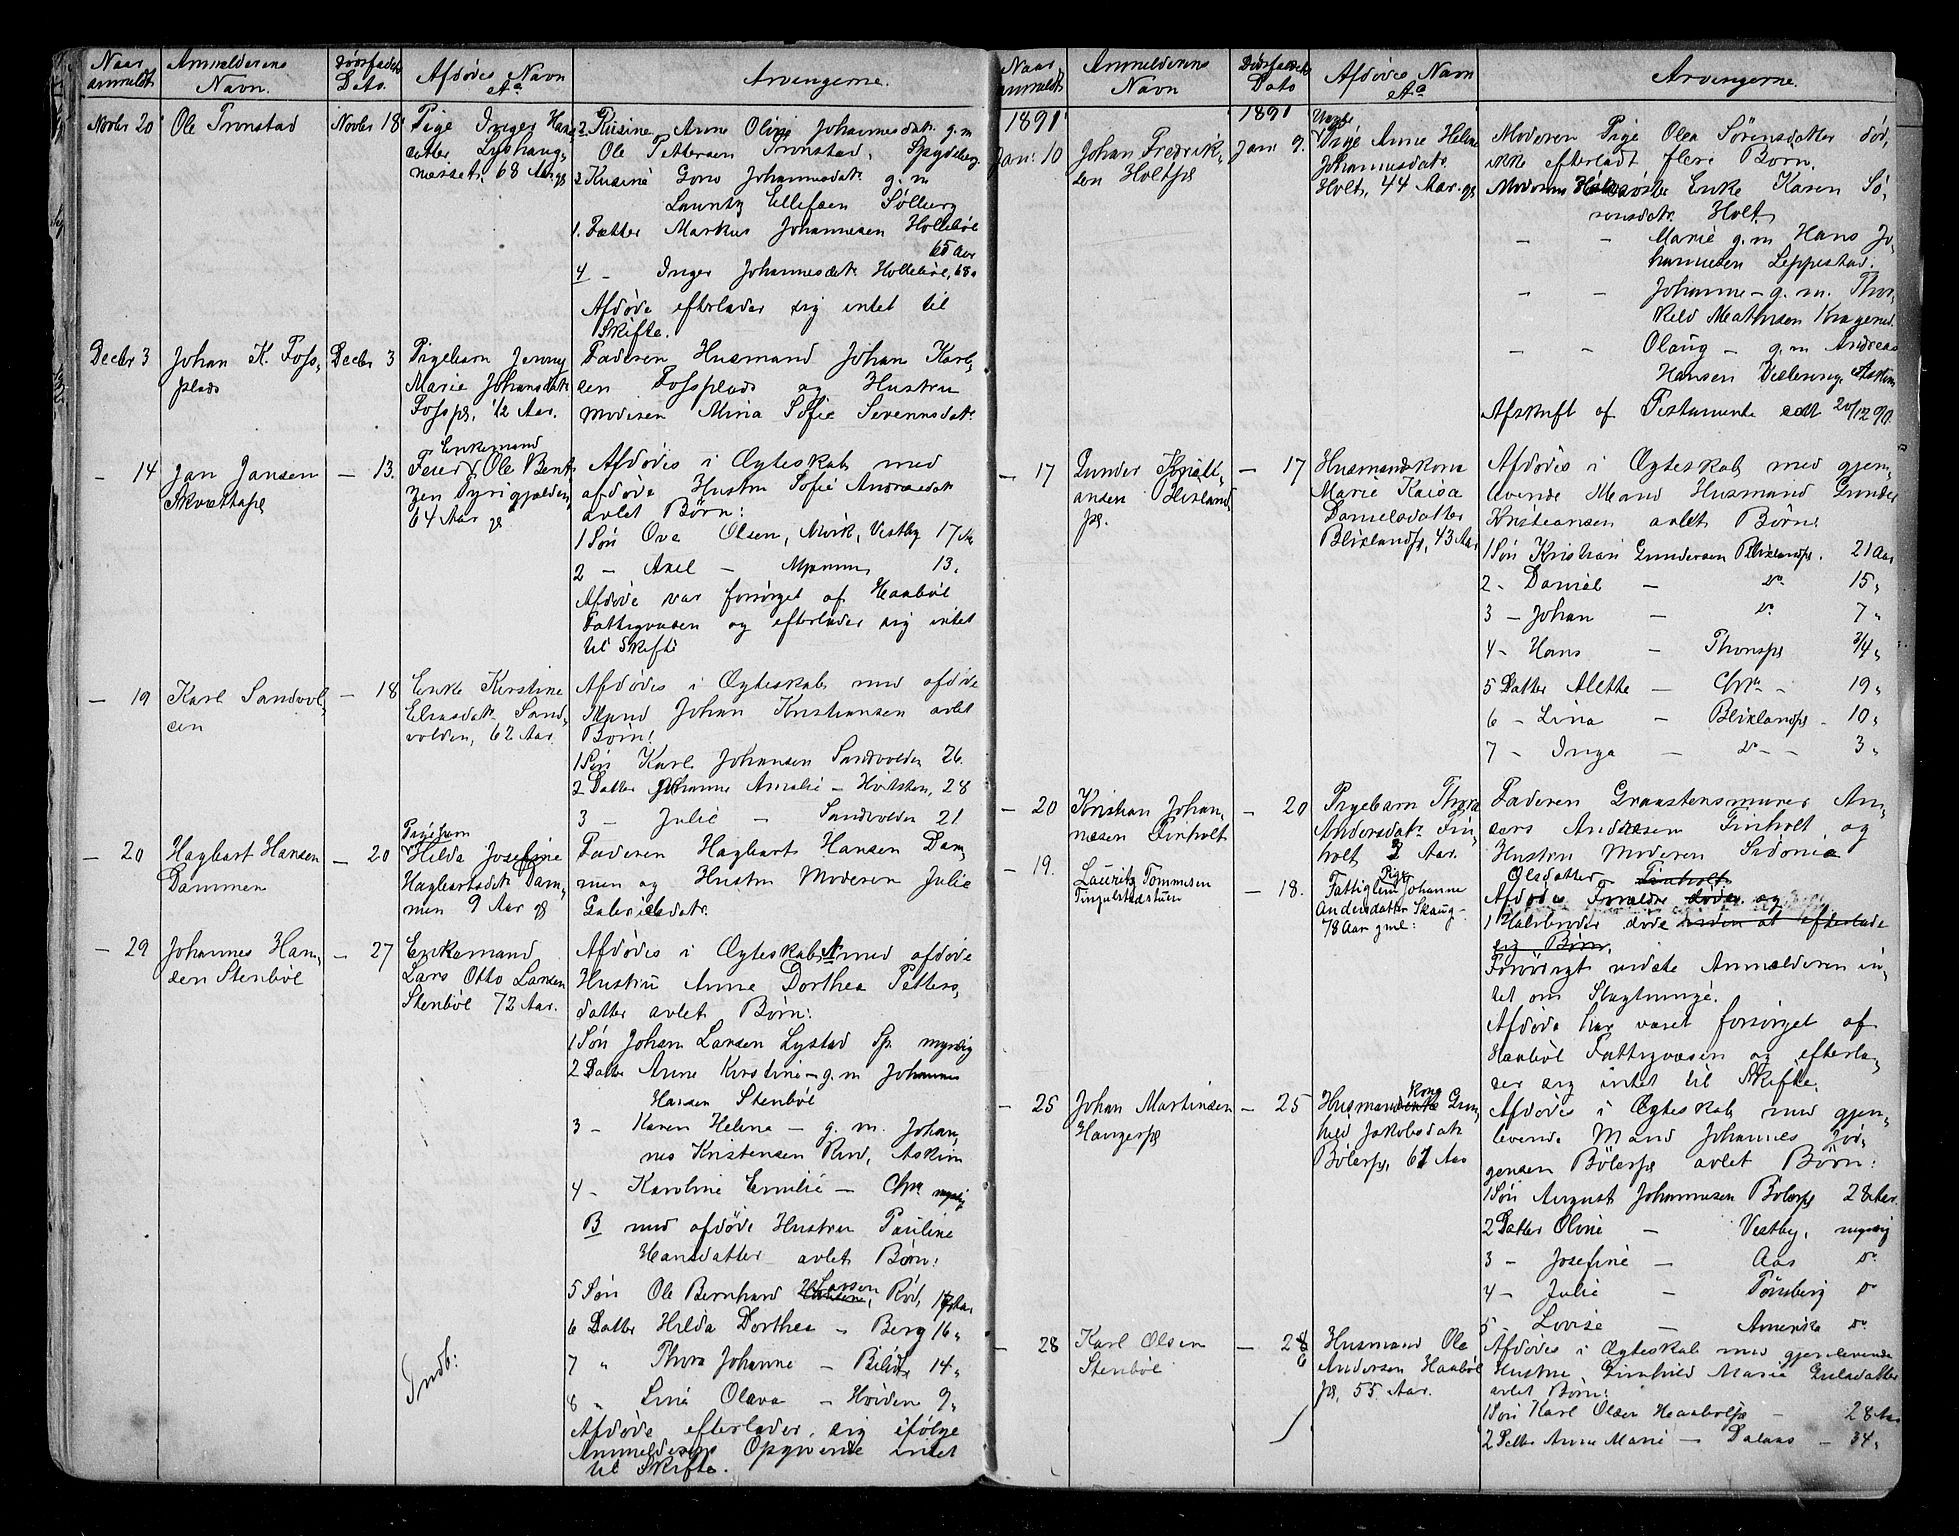 Naar anmeldt
Anmelderens Navn.
Dødsfaldets Dato.
Afdødes Navn &a
Arvingerne.
Novbr 20
Ole Tronstad
Novbr 18
Pige Inger Hans-
datter Lyshaug-
næsset, 68 Aar gl
2 Kusine Anne Olive Johannesdatr g.m
Ole Pettersen Tronstad, Spydeberg
3 Kusine Johannesdatr g.m
Ellefsen Solberg
1. Fætter Markus Johannesen Hollebøl
65 Aar
4 - Inger Johannesdatr Hollebøl, 68 "
Afdøde efterlader sig intet til
Skifte.
Decbr 3
Johan K. Foss-
plads
Decbr 3
Pigebarn Jenny
Marie Johansdatr
Fosspl, 1/2 Aar.
Faderen Husmand Johan Karl-
sen Fossplads og Hustru
moderen Mina Sofie Severinsdatr
- 14
Jan Jansen
Skvættapl
- 13.
Enkemand
Feier Ole Bent-
zen Fyrigjælden,
64 Aar gl
Afdødes i Ægteskab med
afdøde Hustru Sofie Andreasdatr
avlet Børn:
1 Søn Ove Olsen, Mørk, Vestby 17 Aar
2 - Axel - Mjønnum, 13.
Afdøde var forsørget af Haabøl
Fattigvæsen og efterlader sig intet
til Skifte
- 19
Karl Sandvol-
den
- 18
Enke Kirstine
Eliasdatr Sand-
volden, 62 Aar.
Afdødes i Ægteskab med afdøde
Mand Johan Kristiansen avlet
Børn:
1 Søn Karl Johansen Sandvolden 26.
2 Datter Johanne Amalie - Hvitsten, 28
3 - Julie - Sandvolden 21
- 20
Hagbart Hansen
Dammen
- 20
Pigebarn
Hilda Josefine
Hagbartsdatr Dam-
men 9 Aar gl
Faderen Hagbart Hansen Dam-
men og Hustru Moderen Julie
Gabrielsdatr.
- 29
Johannes Han-
sen Stenbøl
- 27
Enkemand
Lars Otto Larsen
Stenbøl 72 Aar.
Afdødes i Ægteskab A med afdøde
Hustru Anne Dorthea Petters-
datter avlet Børn:
1 Søn Johan Larsen Lystad Sp. myndig
2 Datter Anne Kirstine - g.m Johannes
Hansen Stenbøl
3 - Karen Helene - g.m. Johan-
nes Kristensen Rud, Askim
4 - Karoline Emilie - Chra myndig
B med afdøde Hustru Pauline
Hansdatter avlet Børn:
5 Søn Ole Bernhard Larsen Rød, 17 Aar
6 Datter Hilda Dorthea - Berg 16 "
7 " Thora Johanne - 14 "
8 " Line Olava - Hvidsten 9 "
Afdøde efterlader sig ifølge
Anmelderens Opgivende intet
til Skifte.
Indb:
Naar anmeldt
Anmelderens Navn
Dødsfaldets Dato
Afdødes Navn &a
Arvingerne.
1891
Jan: 10
Johan Fredrik-
sen Holtspl
1891
Jan 9.
Ugift
Pige Anne Helene
Johannesdatr
Holt, 44 Aar. gl
Moderen Pige Olea Sørensdatter død,
ikke efterladt flere Børn.
Moderens Halvsøster Enke Karen Sø-
rensdatr Holt
" - Marie g.m Hans Jo-
hannesen Leppestad.
" - Johanne - g.m. Thor-
keld Mathisen Kragerud.
" - Olaug - g.m Andreas
Hansen Askim
Afskrift af Testamente dat 20/12 90.
- 17
Gunder Kristi-
ansen Blixland-
pl.
- 17
Husmandskone
Marie Kaisa
Danielsdatter
Blixlandspl, 43 Aar
Afdødes i Ægteskab med gjen-
levende Mand Husmand Gunder
Kristiansen avlet Børn:
1 Søn Kristian Gundersen Blixlandspl. 21 Aar
2 - Daniel - do 15 "
3 - Johan - do 7 "
4 - Hans - Thonspl 3/4 "
5 Datter Alette - Chra - 19 "
6 - Lina - Blixlandspl - 10 "
7 - Inga - do - - 3 "
- 20
Kristian Johan-
nesen Finholt
- 20
Pigebarn Thora
Andersdatr Fin-
holt 2 Aar.
Faderen Graastensmurer An-
ders Andersen Finholt og
Hustru Moderen Sidonia
Olsdatter Finholt
- 19.
Lauritz Tommesen
Tingulstadstuen
- 18.
Fattiglem Pige Johanne
Andersdatter Skaug-
78 Aar gml:
Afdødes Forældre døde og
1 Halvbroder døde uden at efterlade
sig Børn.
Forøvrigt vidste Anmelderen in-
tet om Slægtninge.
Afdøde har været forsørget af
Haabøl Fattigvæsen og efterla-
der sig intet til Skifte.
- 25
Johan Martinsen
Haugerspl
- 25
Husmandskone Gun-
hild Jakobsdatr
Bølerspl, 61 Aar
Afdødes i Ægteskab med gjen-
levende Mand Johannes Jør-
gensen Bølerspl avlet Børn:
1 Søn August Johannesen Bølerspl 28 Aar.
2 Datter Oline - Vestby, myndig
3 - Josefine - Aas do
4 - Julie - Tønsberg do
5 - Lovise - Amerika do
- 28
Karl Olsen
Stenbøl
- 26
Husmand Ole
Andersen Haabøl
pl, 55 Aar.
Afdødes i Ægteskab med gjenlevende
Hustru Gunhild Marie
avlet Børn:
1 Søn Karl Olsen Haabølspl - 28 Aar
2 Datter Anne Marie - - 34 "